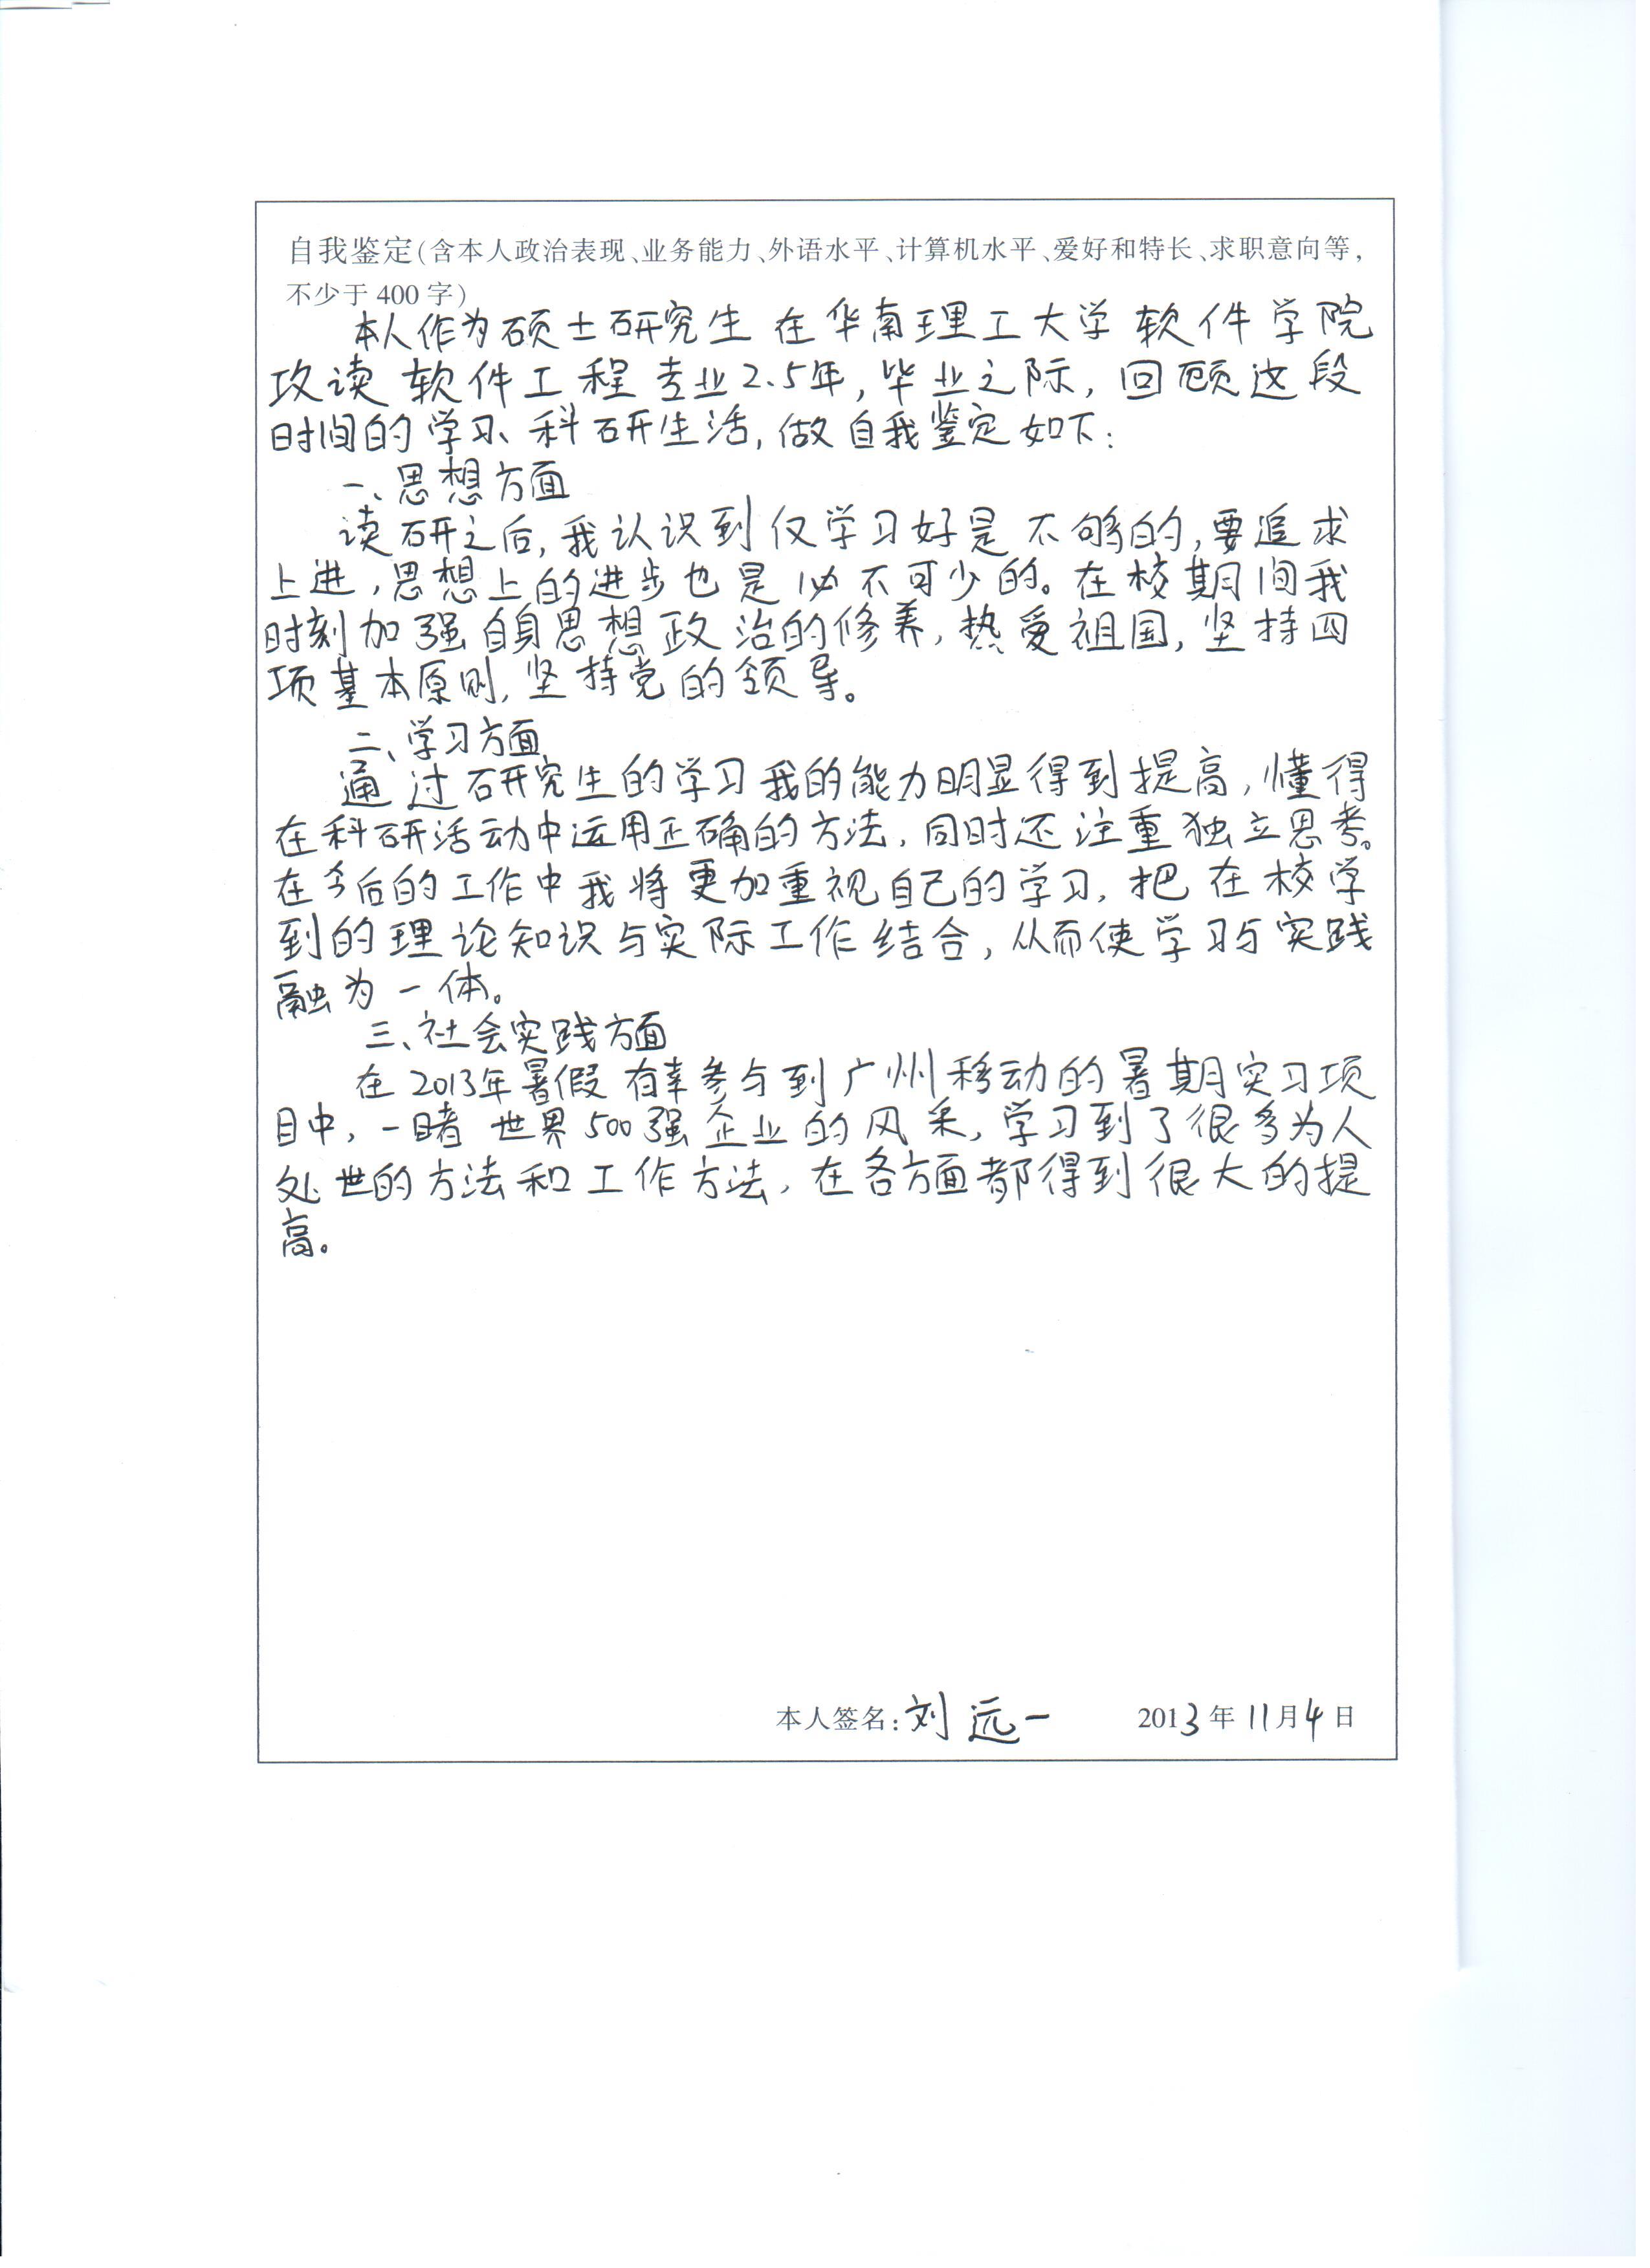 自我鉴定(含本人政治表现、业务能力、外语水平、计算机水平、爱好和特长、求职意向等,
不少于400字)
本人作为硕士研究生在华南理工大学软件学院
攻读软件工程专业2.5年,毕业之际,回顾这段
时间的学习、科研生活,做自我鉴定如下:
一、思想方面
读研之后,我认识到仅学习好是不够的,要追求
上进,思想上的进步也是必不可少的。在校期间我
时刻加强自身思想政治的修养,热爱祖国,坚持四
项基本原则,坚持党的领导。
二、学习方面
通过研究生的学习我的能力明显得到提高,懂得
在科研活动中运用正确的方法,同时还注重独立思考。
在今后的工作中我将更加重视自己的学习,把在校学
到的理论知识与实际工作结合,从而使学习与实践
融为一体。
三、社会实践方面
在2013年暑假有幸参与到广州移动的暑期实习项
目中,一睹世界500强企业的风采,学习到了很多为人
处世的方法和工作方法,在各方面都得到很大的提
高。
本人签名:刘远一 2013年11月4日